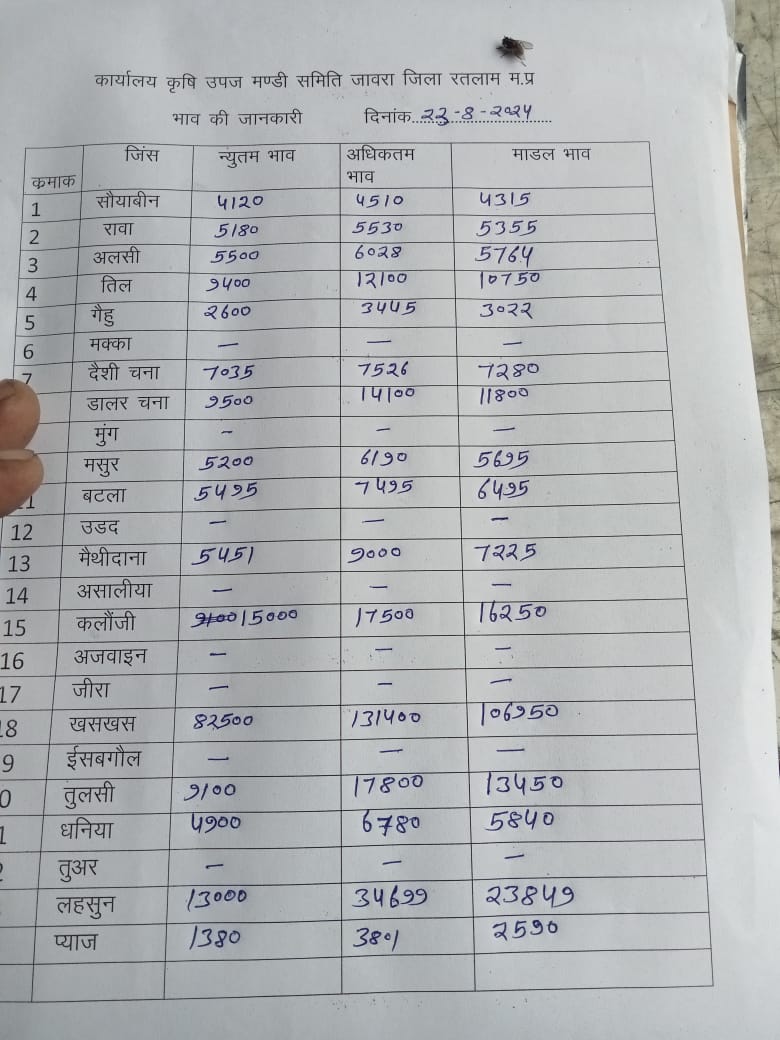 कार्यालय कृषि उपज मण्डी समिति जावरा जिला रतलाम म.प्र
भाव की जानकारी दिनांक..23-8-2024
कमाक जिंस न्युतम भाव अधिकतम भाव माडल भाव
1 सौयाबीन 4120 4510 4315
2 रावा 5180 5530 5355
3 अलसी 5500 6028 5764
4 तिल 9400 12100 10750
5 गैहु 2600 3445 3022
6 मक्का — — —
7 दैशी चना 7035 7526 7280
डालर चना 9500 14100 11800
मुंग - — —
मसुर 5200 6190 5695
11 बटला 5495 7495 6495
12 उडद — — —
13 मैथीदाना 5451 9000 7225
14 असालीया — — —
15 कलौंजी 15000 17500 16250
16 अजवाइन — — —
17 जीरा — — —
18 खसखस 82500 131400 106950
9 ईसबगौल — — —
0 तुलसी 9100 17800 13450
1 धनिया 4900 6780 5840
2 तुअर — — —
लहसुन 13000 34699 23849
प्याज 1380 3801 2590